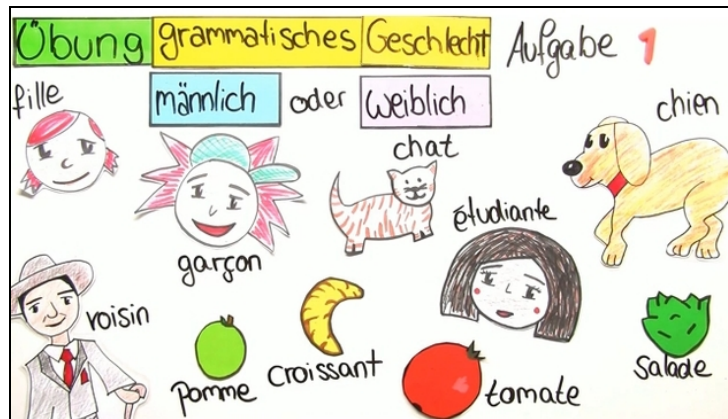 Übung grammatisches Geschlecht Aufgabe 1
männlich oder weiblich
fille
chat
chien
garçon
étudiante
voisin
pomme
Croissant
tomate
Salade